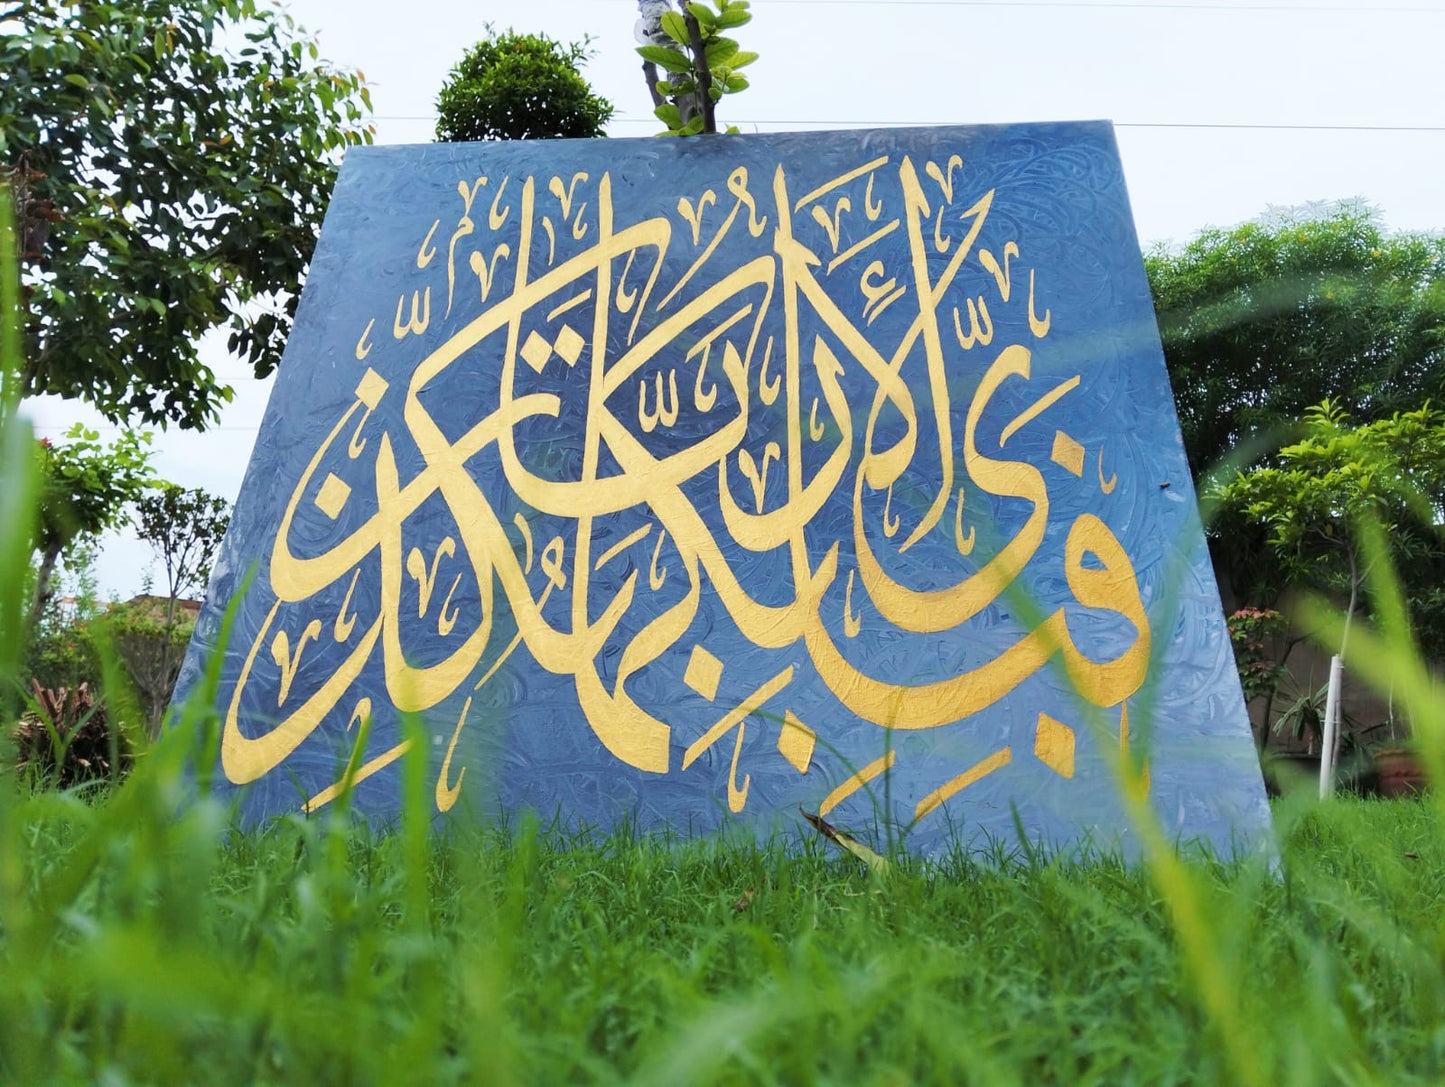 فَبِأَىِّ ءَالَآءِ رَبِّكُمَا تُكَذِّبَانِ